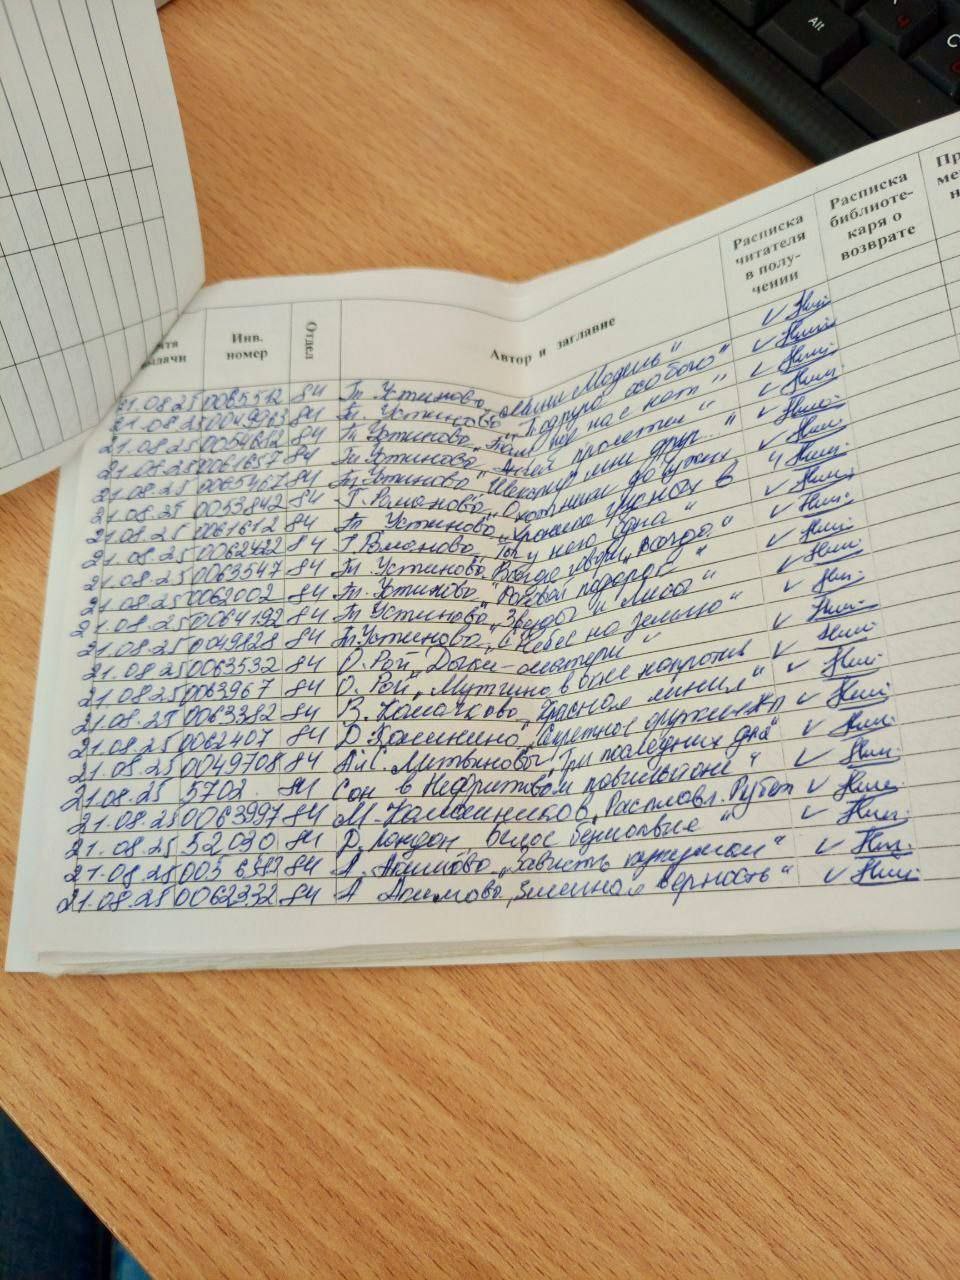 Alt
Дата
выдачи
Инв.
номер
Отдел
Автор и заглавие
Расписка
читателя
в полу-
чении
Расписка
библиоте-
каря о
возврате
21.08.25 0065512 84 Т. Устинова
21.08.25 0049963 84 Т. Устинова "Подруга особого"
21.08.25 0054652 84 Т. Устинова нас нет"
21.08.25 0061657 84 Т. Устинова "Ангел пролетел"
21.08.25 0065467 84 Т. Устинова "Шекспир мне друг..."
21.08.25 0053842 84 Г. Романова "Охотники до чужих
21.08.25 0061612 84 Т. Устинова "Хроника гнусных в
21.08.25 0062422 84 Г. Романова у него одна"
21.08.25 0063547 84 Т. Устинова "Всегда говори всегда"
21.08.25 0062002 84 Т. Устинова "Роковой подарок"
21.08.25 0064192 84 Т. Устинова "Звезды и Лисы"
21.08.25 0049828 84 Т. Устинова "С небес на землю"
21.08.25 0063532 84 О. Рой "Дыши-матери"
21.08.25 0063967 84 О. Рой "Мужчина в окне напротив
21.08.25 0063382 84 В. "Красная линия"
21.08.25 0062407 84 Д. Калинина "Секретное
21.08.25 0049708 84 А и С. Литвиновы "Три последних дня"
21.08.25 5702 84 Сон в Нефритовом павильоне"
21.08.25 0063997 84 М. Калашников
21.08.25 52030 84 Д. Лондон "Белое безмолвие"
21.08.25 84 А. Акимова "Зависть
21.08.25 0062332 84 А Акимова "Змеиная верность"